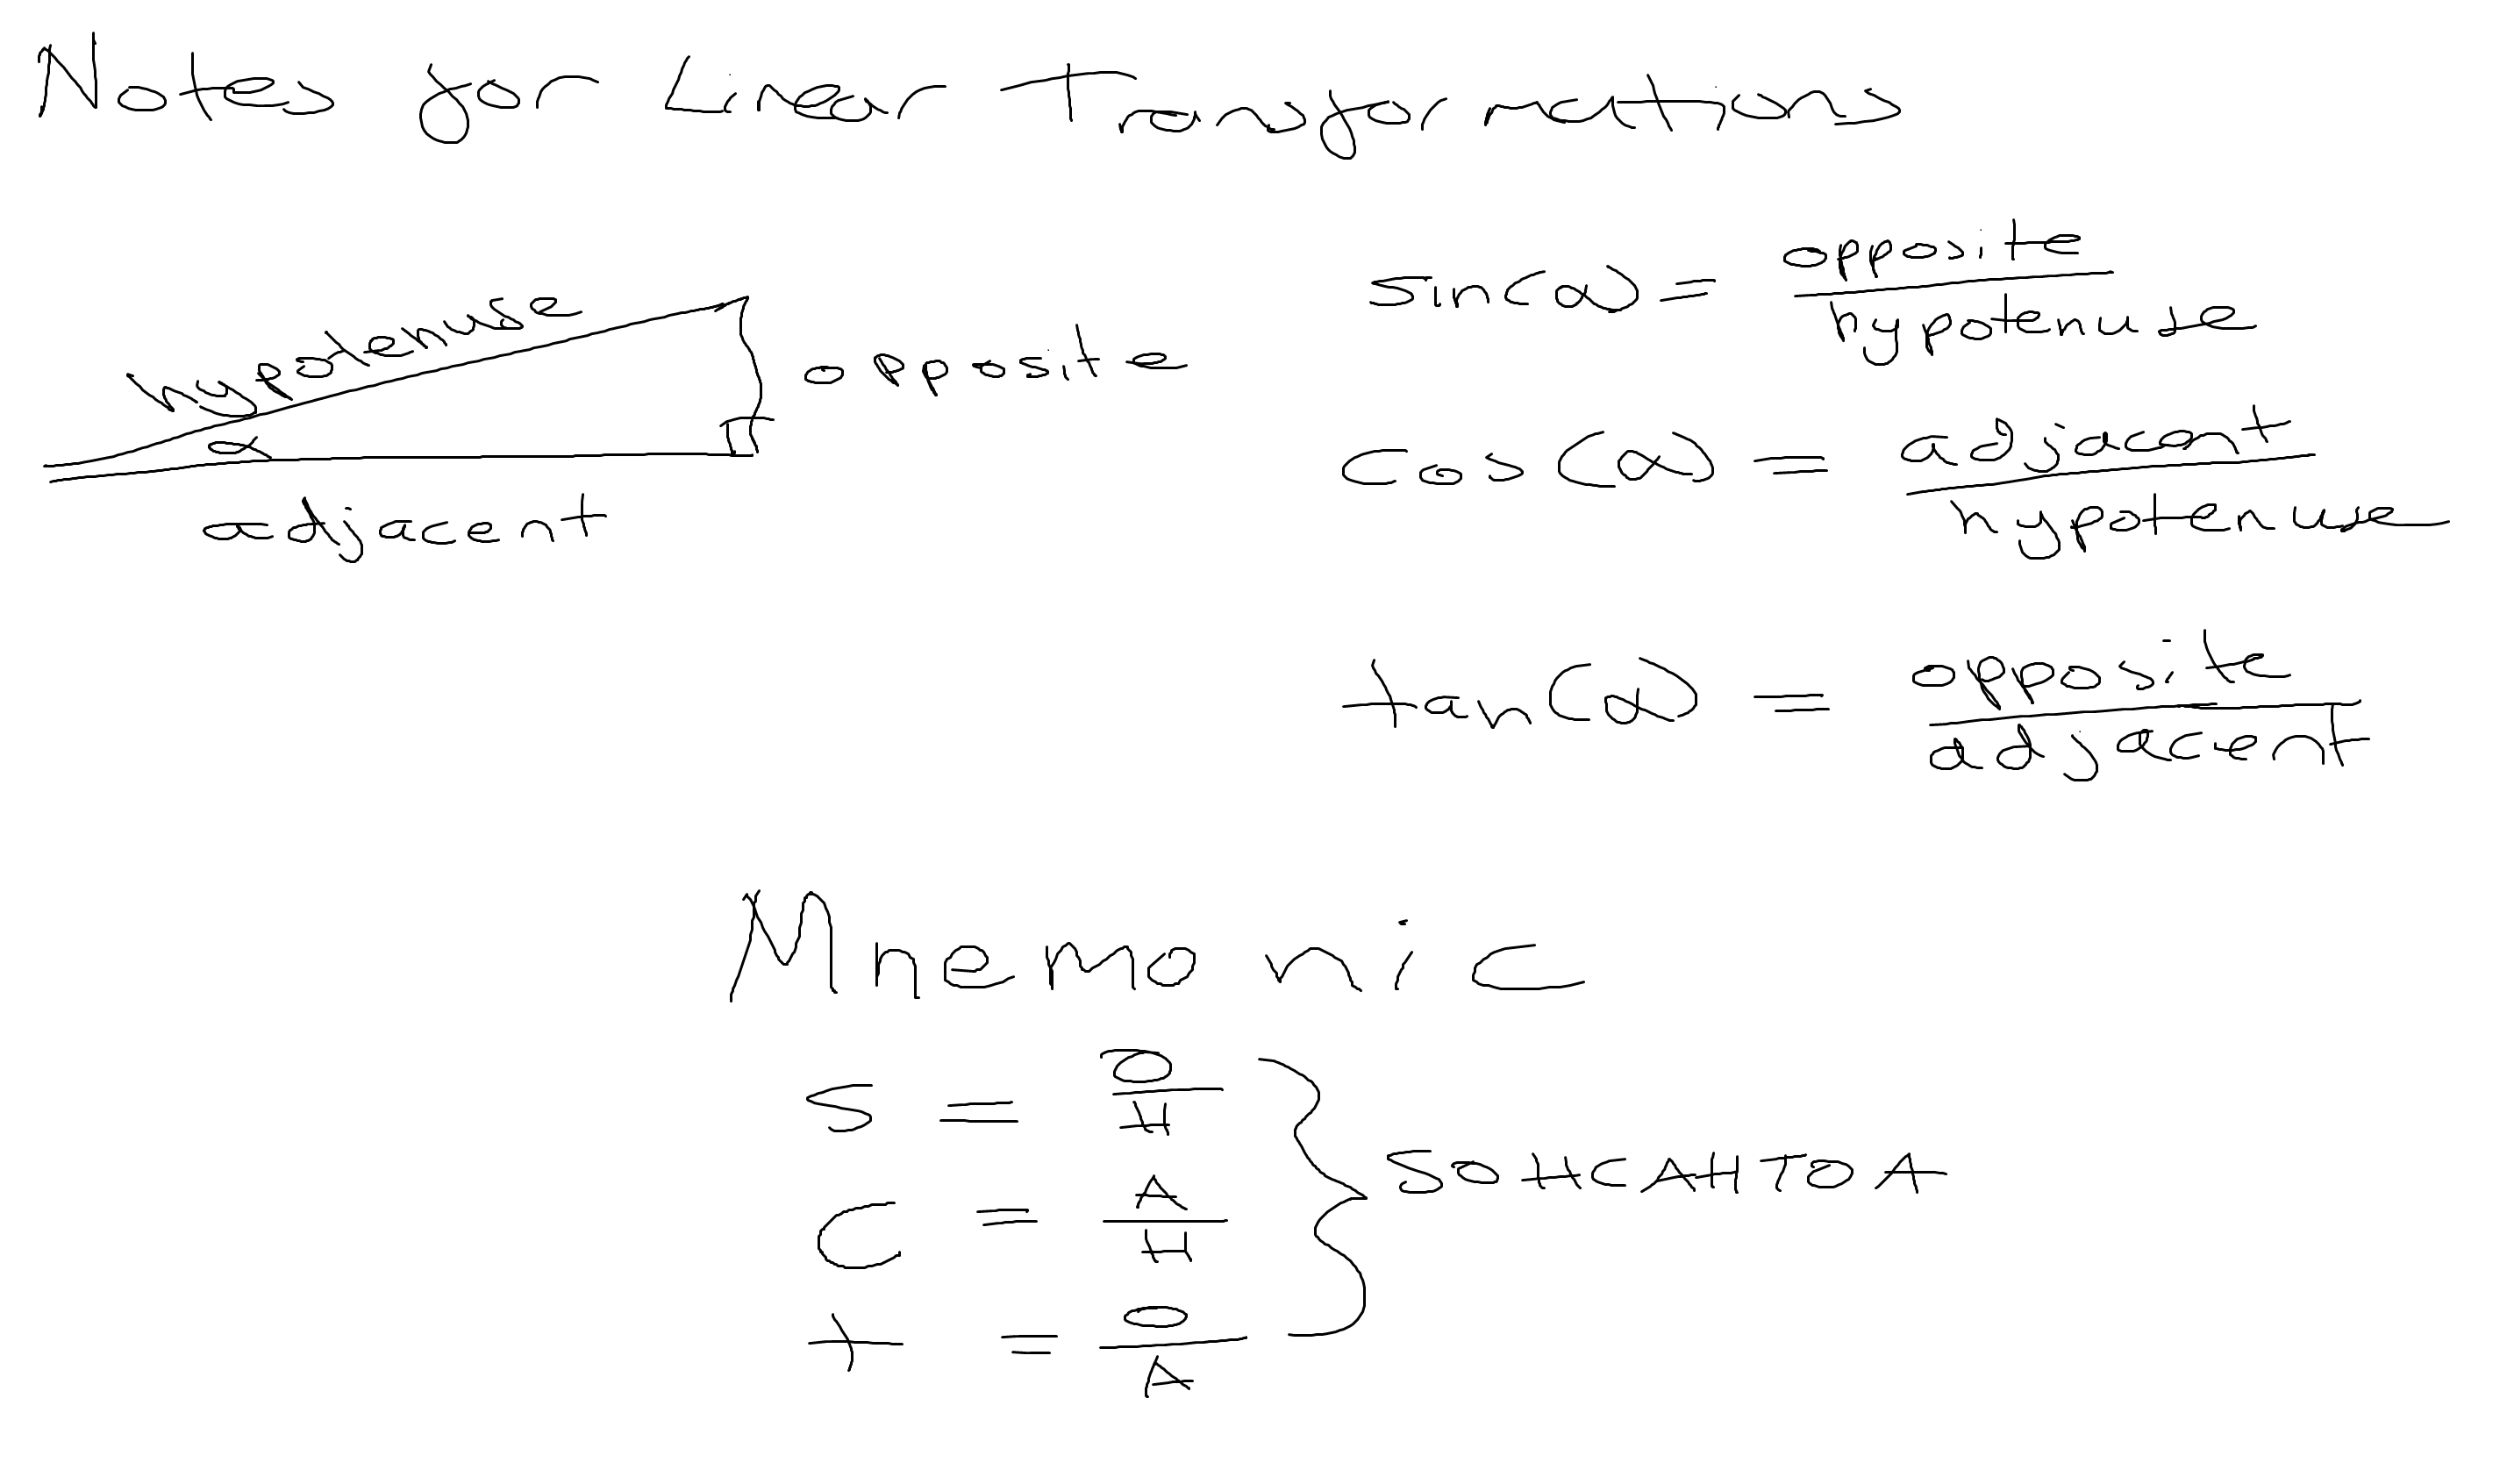 Notes for Linear Transformations
hypotenuse
opposite
α
adjacent
sin(α) = opposite / hypotenuse
cos(α) = adjacent / hypotenuse
tan(α) = opposite / adjacent
Mnemonic
S = O / H
C = A / H
T = O / A
SOHCAHTOA